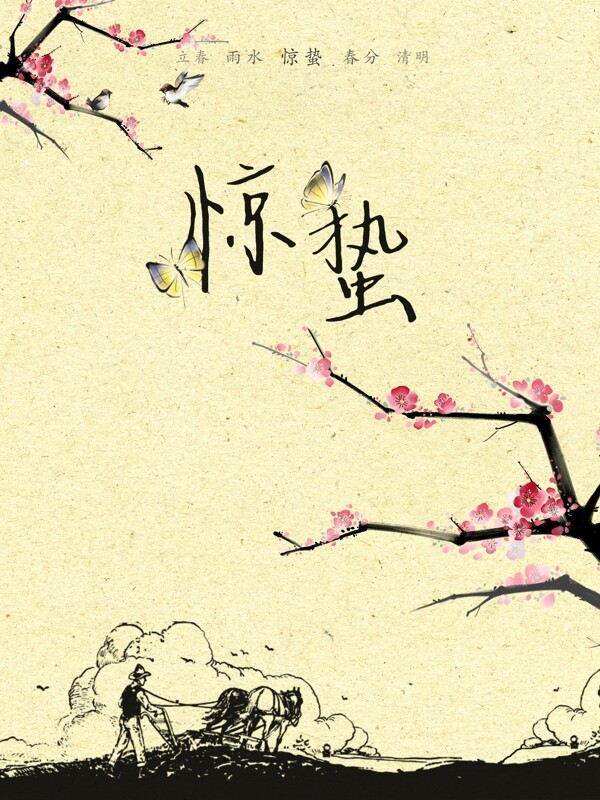 立春 雨水 惊蛰 春分 清明
惊蛰